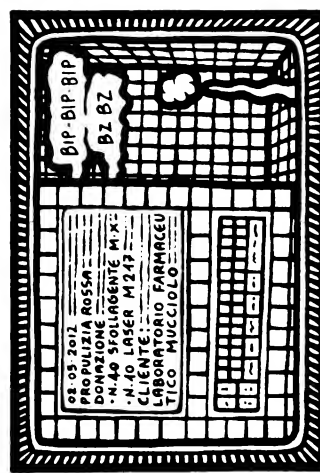 BIP-BIP-BIP
BZ BZ
02·05·2012
PROPULIZIA ROSSA
DONAZIONE
·N.40 SFOLLAGENTE M·X
·N.10 LASER M247
CLIENTE:
LABORATORIO FARMACEU
TICO MUCCIOLO